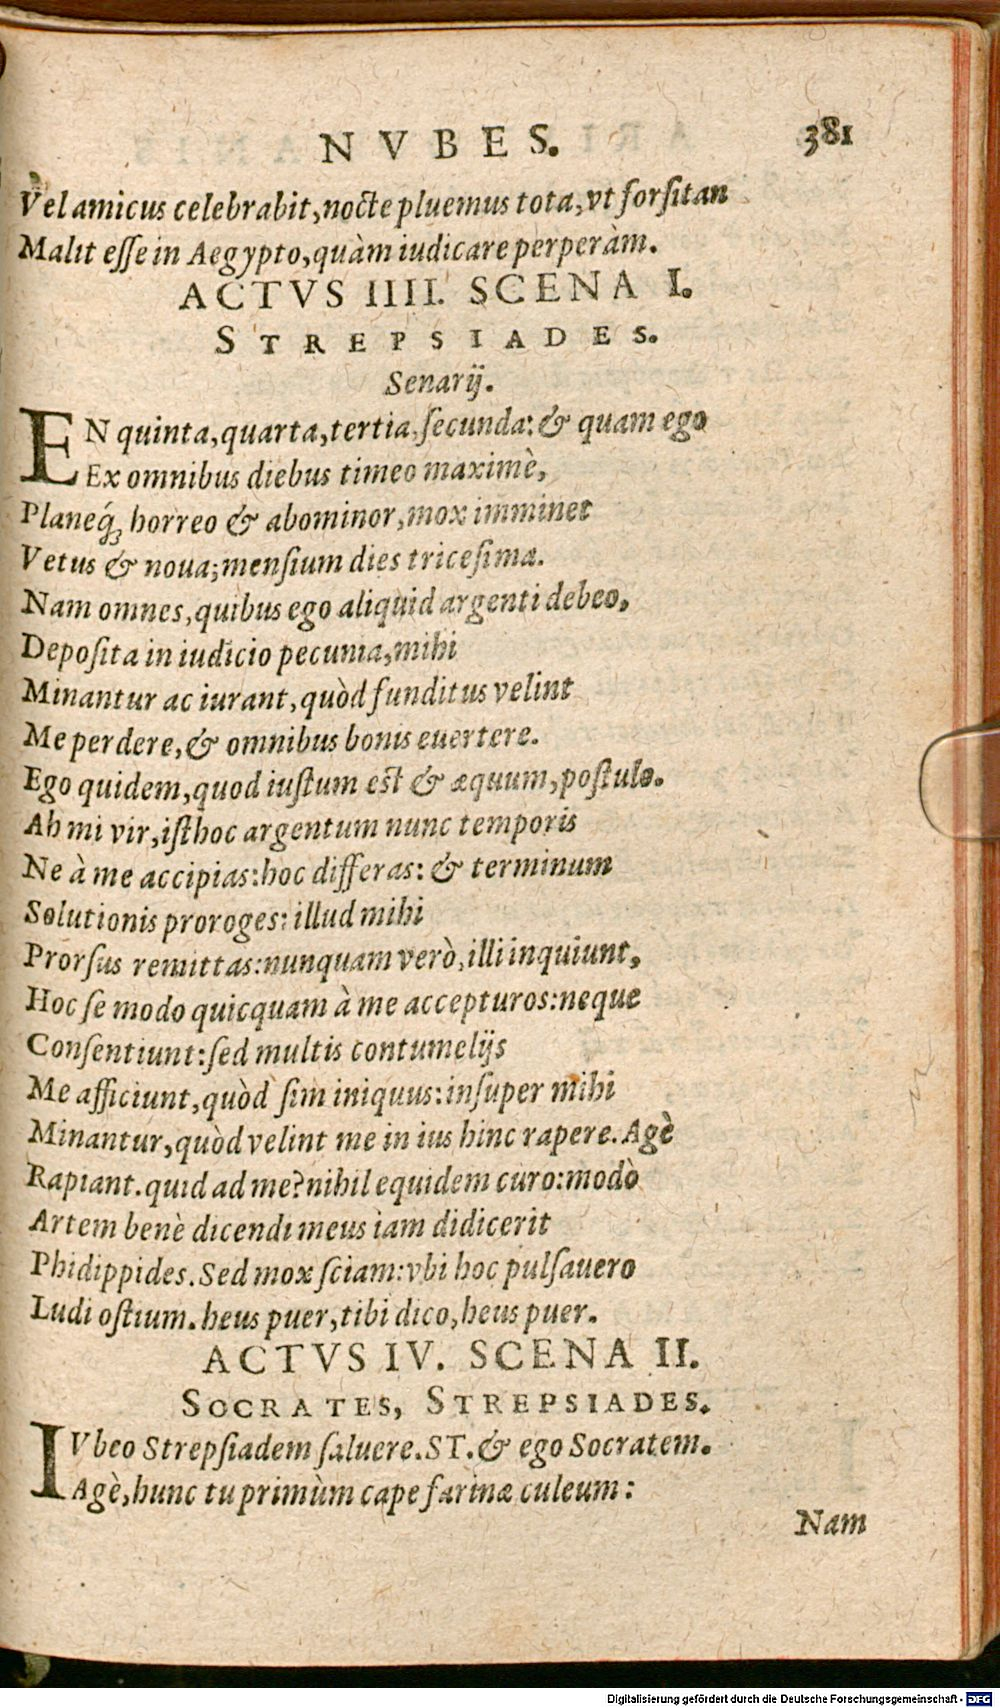 NVBES. 381
Vel amicus celebrabit, nocte pluemus tota, vt forſitan
Malit eſſe in Aegypto, quàm iudicare perperàm.
ACTVS IIII. SCENA I.
STREPSIADES.
Senarij.
EN quinta, quarta, tertia, ſecunda: & quam ego
Ex omnibus diebus timeo maximè,
Planeq́; horreo & abominor, mox imminet
Vetus & noua; menſium dies triceſima.
Nam omnes, quibus ego aliquid argenti debeo,
Depoſita in iudicio pecunia, mihi
Minantur ac iurant, quòd funditus velint
Me perdere, & omnibus bonis euertere.
Ego quidem, quod iuſtum eſt & æquum, poſtulo.
Ah mi vir, iſthoc argentum nunc temporis
Ne à me accipias: hoc differas: & terminum
Solutionis proroges: illud mihi
Prorſus remittas: nunquam verò, illi inquiunt,
Hoc ſe modo quicquam à me accepturos: neque
Conſentiunt: ſed multis contumelijs
Me afficiunt, quòd ſim iniquus: inſuper mihi
Minantur, quòd velint me in ius hinc rapere. Agè
Rapiant. quid ad me? nihil equidem curo: modò
Artem benè dicendi meus iam didicerit
Phidippides. Sed mox ſciam: vbi hoc pulſauero
Ludi oſtium. heus puer, tibi dico, heus puer.
ACTVS IV. SCENA II.
SOCRATES, STREPSIADES.
IVbeo Strepſiadem ſaluere. ST. & ego Socratem.
Agè, hunc tu primùm cape farinæ culeum:
Nam
Digitalisierung gefördert durch die Deutsche Forschungsgemeinschaft - DFG